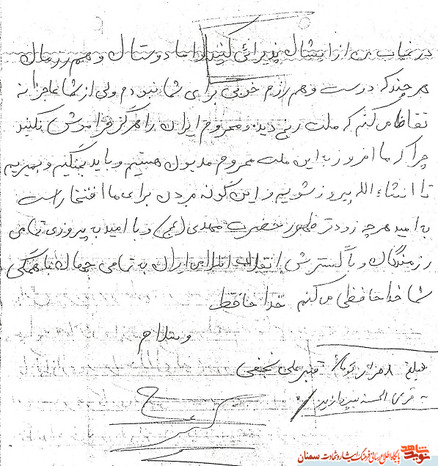 در غیاب من از ایشان پذیرائی کنید و اما دوستان و هم رزمان
هر چند که دوست و هم رزم خوبی برای شما نبودم ولی از شما عاجزانه
تقاضا می کنم که ملت رنج دیده و محروم ایران را هرگز فراموش نکنید
چرا که ما امروز به این ملت محروم مدیون هستیم و باید بجنگیم و بمیریم
تا انشاء الله پیروز شویم و این گونه مردن برای ما افتخار است
به امید هر چه زودتر ظهور حضرت مهدی (عج) و با امید به پیروزی تمامی
رزمندگان و با گسترش انقلاب اسلامی ایران به تمامی جهان با همگی
شما خدا حافظی می کنم خدا حافظ
والسلام
مبلغ هزار تومان قنبر علی نجفی
به قرض الحسنه
پایگاه اطلاع رسانی فرهنگ ایثار و شهادت سمنان
نوید شاهد